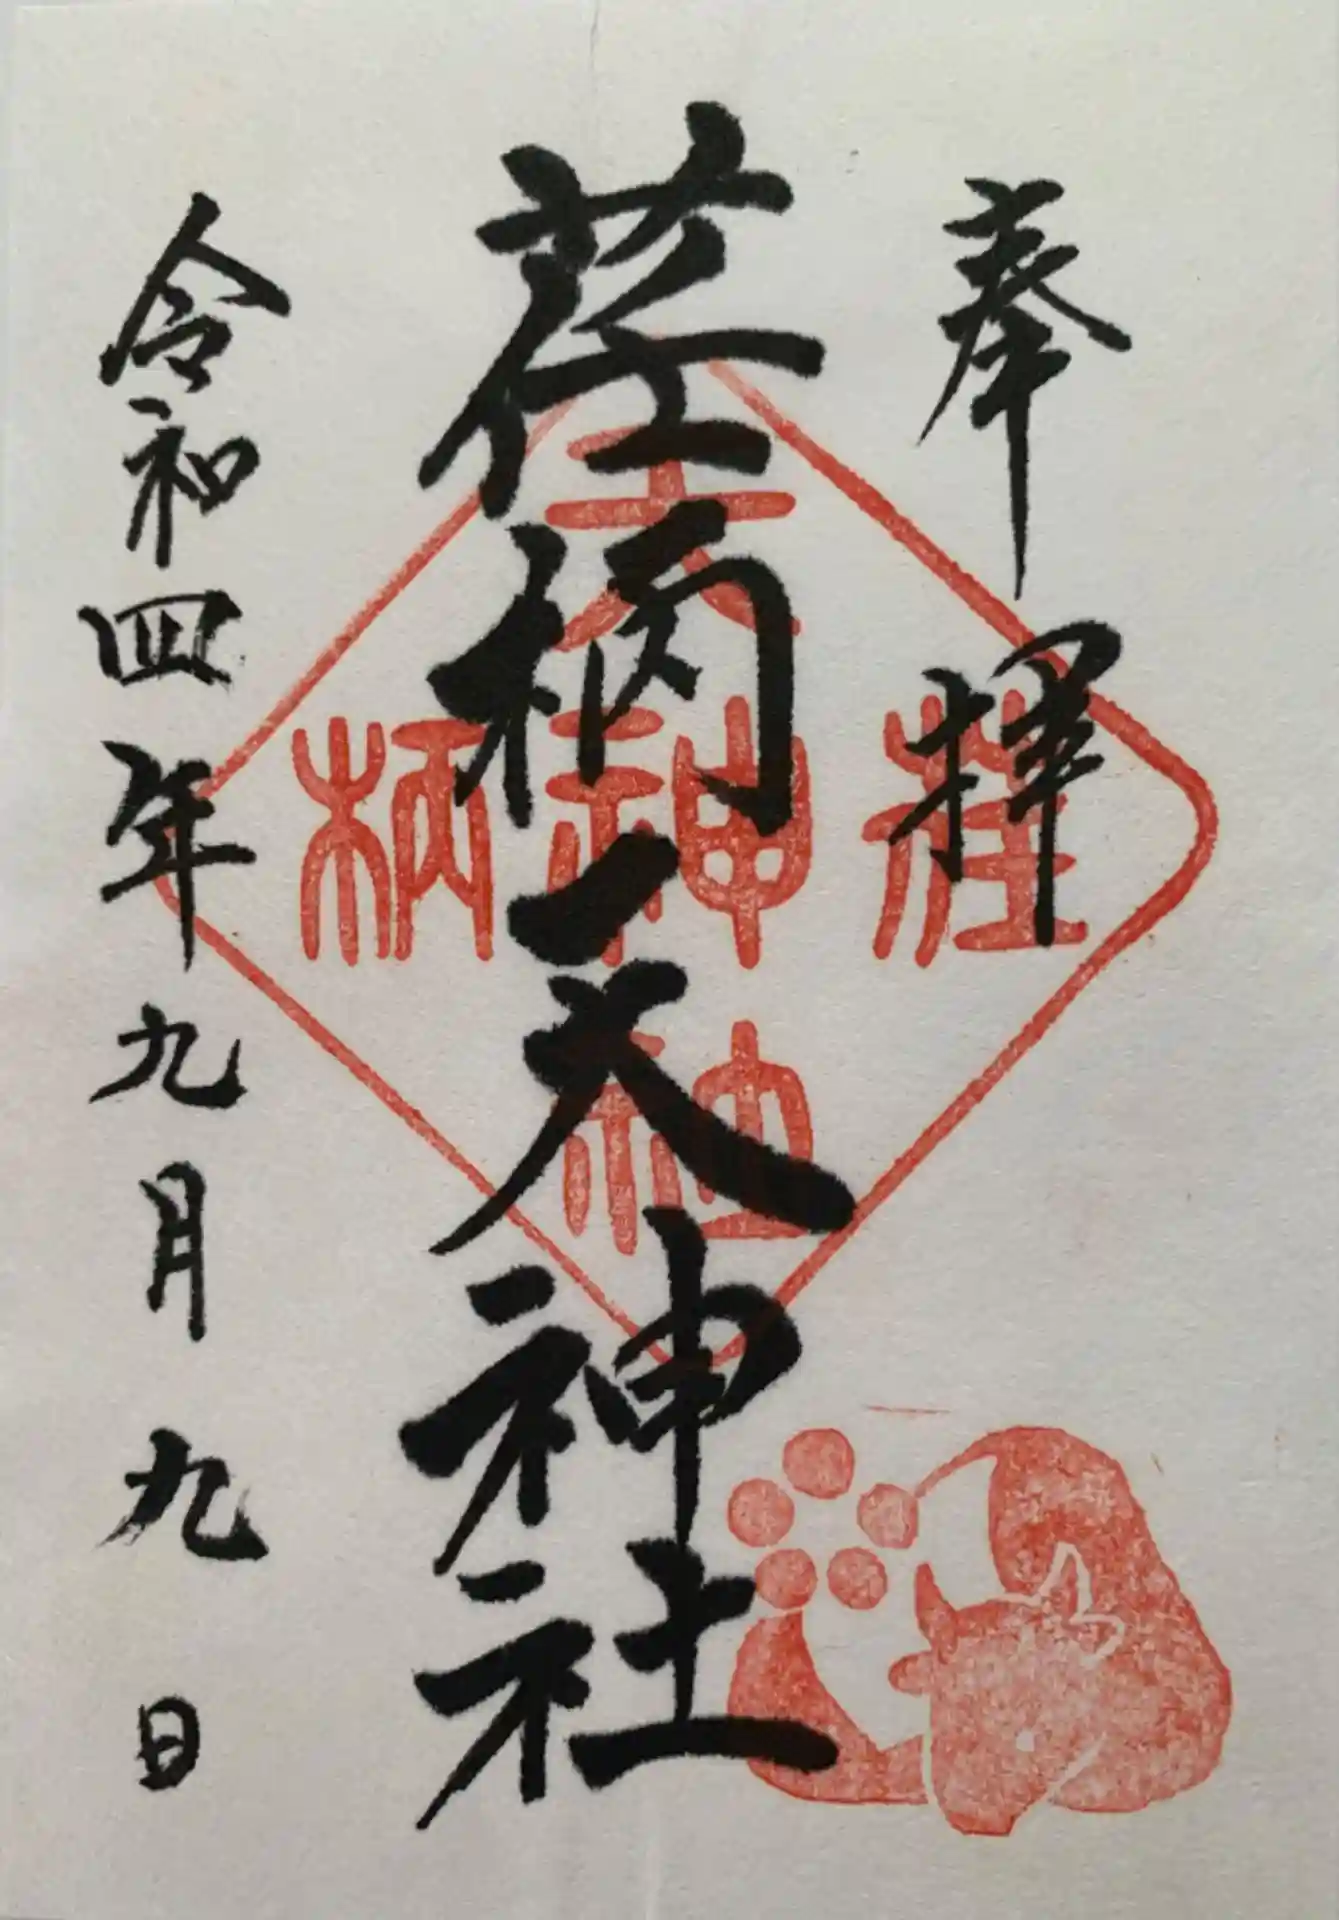 奉拝
荏柄天神社
令和四年九月九日
荏
天神社
柄